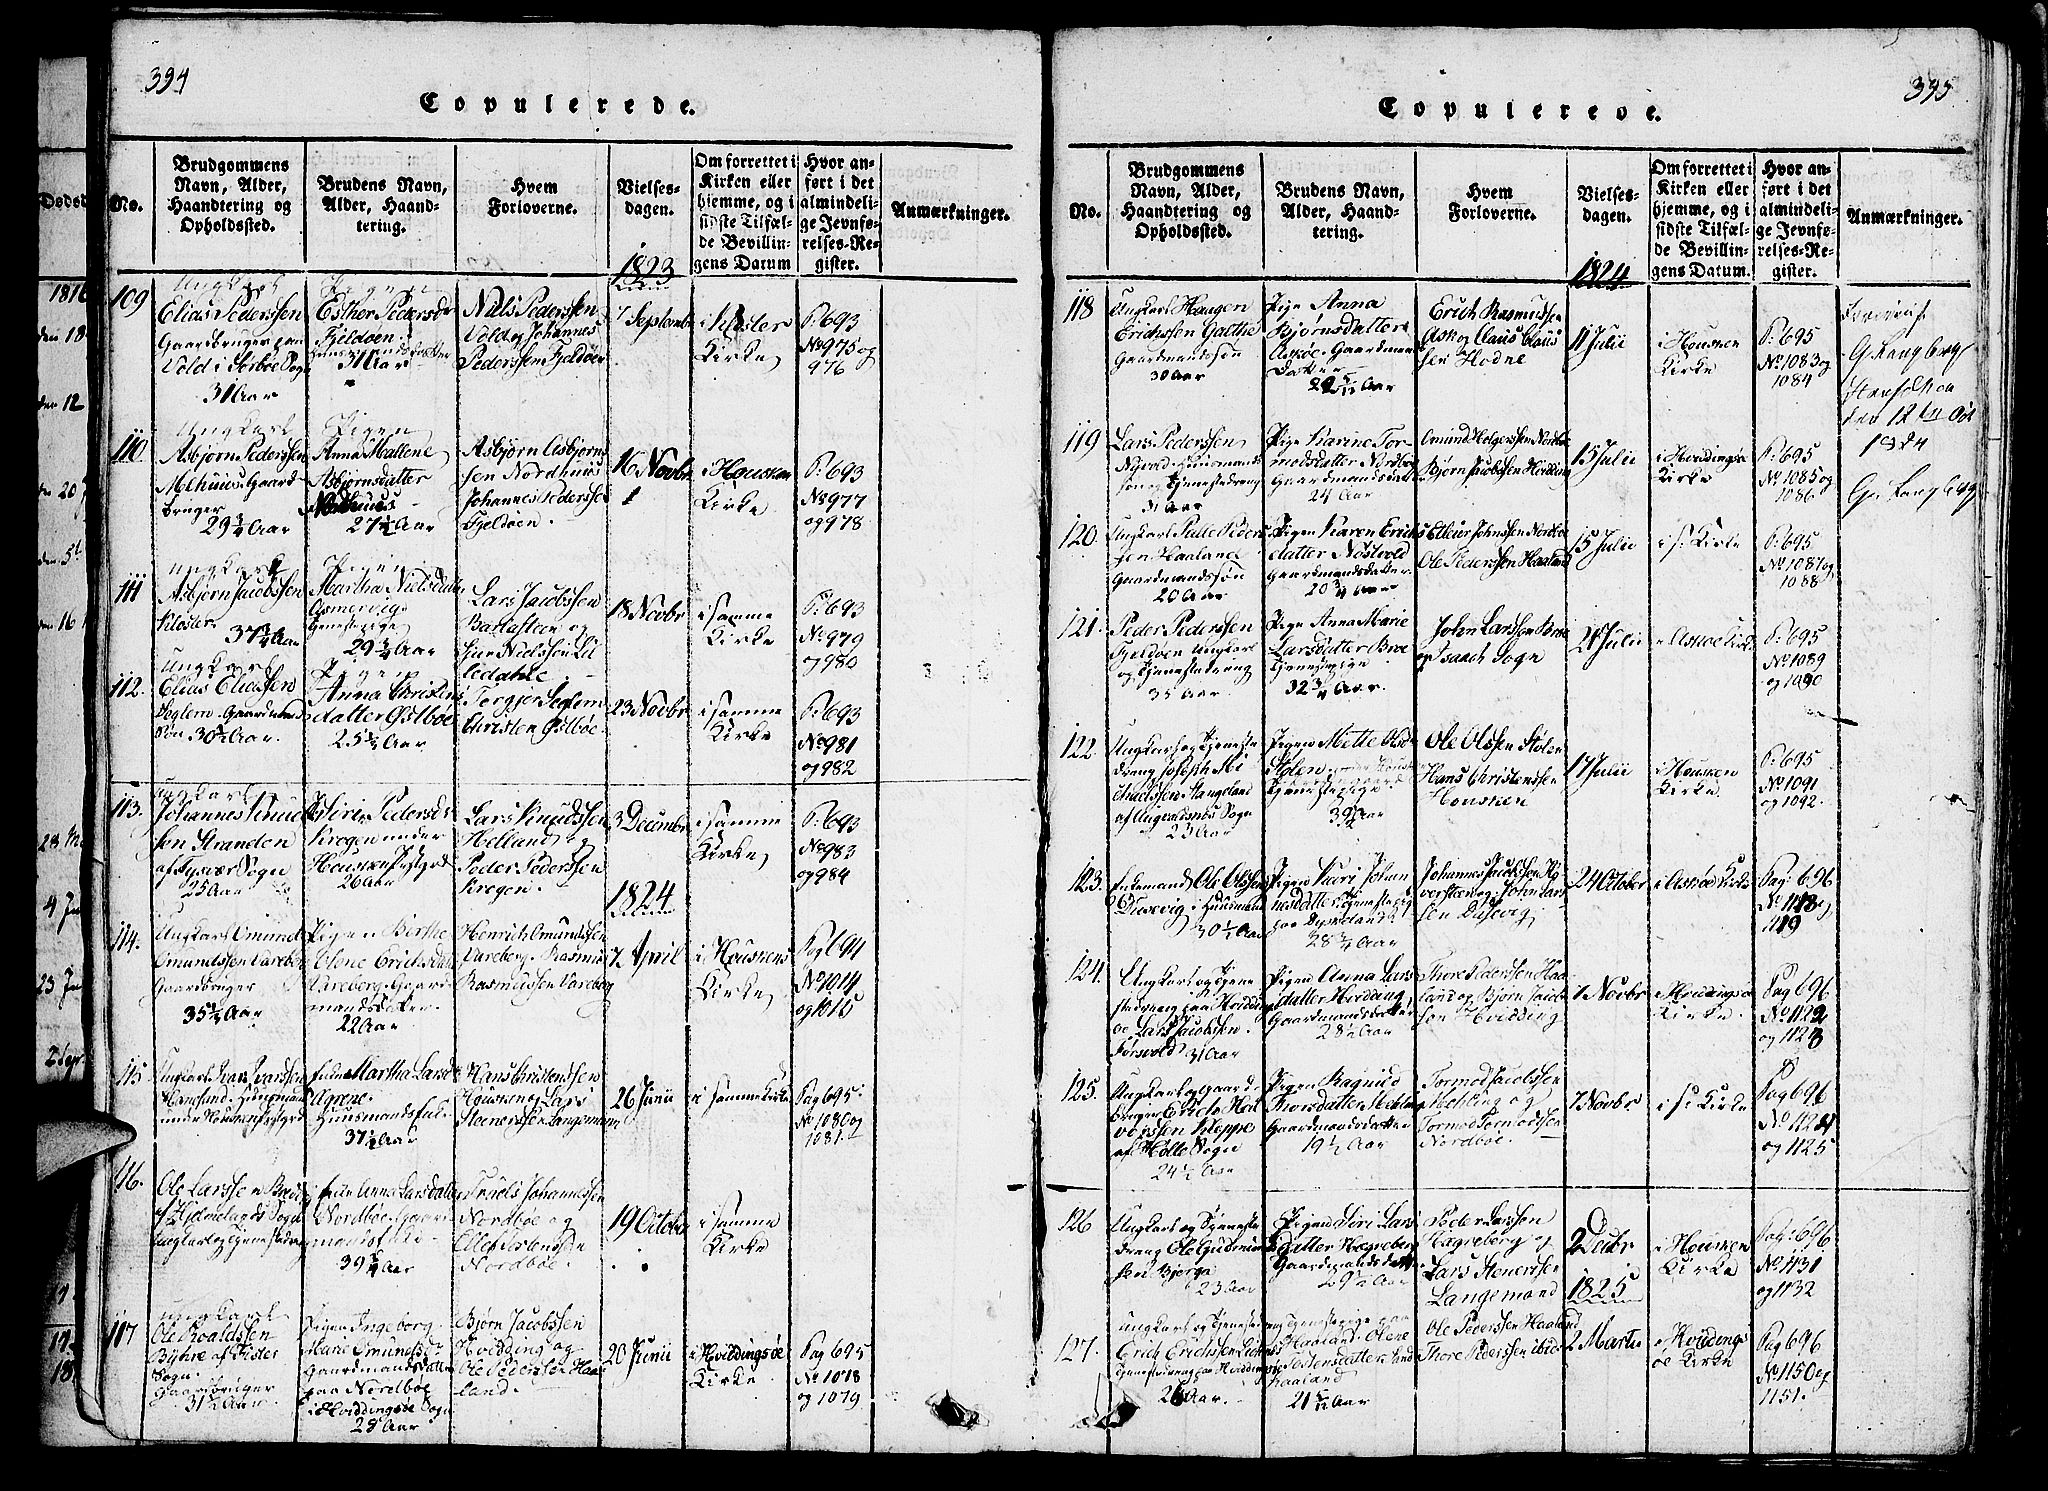 394
Copulerede.
No.
Brudgommens Navn, Alder, Haandtering og Opholdssted.
Brudens Navn, Alder, Haandtering.
Hvem Forloverne.
Vielsesdagen.
Om forrettet i Kirken eller hjemme, og i sidste Tilfælde Bevillingens Datum
Hvor anført i det almindelige Jevnførelses-Register.
Anmærkninger.
1823
109
Ungkarl
Elias Pederssen
Gaardbruger paa
Vold i Sørbøe Sogn
31 Aar
Pigen
Esther Pedersd
Fjeldøen
31 Aar
Niels Pederssen
Vold og Johannes
Pederssen Fjeldøe
7 Septembr
i Kloster
Kirke
P: 693
No 975 og
976
110.
Ungkarl
Asbjørn Pederssen
Melhuus Gaard
bruger
29 3/4 Aar
Pigen
Anna Mallene
Asbjørnsdatter
Nordhuus
27 1/2 Aar
Asbjørn Asbjørn
sen Nordhuus
Johannes Pederssen
Fjeldøen.
16 Novbr
i Housken
Kirke
P: 693
No 977
og 978.
111
Ungkarl
Asbjørn Jacobssen
Kloster
37 3/4 Aar
Pigen
Martha Nielsdatter
Asmervig
Tjenestepige
29 3/4 Aar
Lars Jacobssen
Bartasteen og
Siur Nielssen Lil
ledahle
18 Novbr
i samme
Kirke
P: 693
No 979
og 980
112.
Ungkarl
Elias Eliassen
Seglem Gaardmands
søn 30 1/2 Aar.
Pigen
Anna Christens
datter Østbøe
25 1/4 Aar
Torgier Seglem
Christen Østbøe.
23 Novbr
i samme
Kirke
P: 693
No 981
og 982
113.
Ungkarl
Johannes Knud
sen Stranden
af Tysvær Sogn
25 Aar
P. Siri Pedersd
Krogen under
Housken Præstgrd
26 Aar
Lars Knudssen
Helland og
Peder Pederssen
Krogen.
3 Decembr
i samme
Kirke
P: 693
No 983
og 984
1824
114.
Ungkarl Omund
Omundssen Vareberg
Gaardbruger
35 1/4 Aar
Pigen Berthe
Elene Erichsdat
Vareberg. Gaard
mandsdatter.
22 Aar
Henrich Omundssen
Vareberg. Rasmus
Rasmussen Vareberg
7 April
i Houskens
Kirke
Pag 694
No 1014
og 1015
115
Ungkarl Ivar Ivarssen
Hanesund. Huusmand
under Housken Præstgrd
Enke Martha Larsd
Agrene.
Huusmandsfolk.
37 1/2 Aar
Hans Christenssen
Housken og Lars
Steenerssen Langemann
26 Junii
i samme Kirke
Pag 695.
No 1080 og
1081.
116.
Ole Larssen Brud
af Hjelmelands Sogn
Ungkarl og Tjenestedreng
Enke Anna Larsdatter
Nordbøe. Gaard
mandsfolk
39 3/4 Aar
Truels Johannessen
Nordbøe og
Elles Torstenssen
Nordbøe.
19 October
i samme
Kirke
117
Ungkarl
Ole Roaldssen
Byhre af Fister
Sogn.
Gaardbruger
31 1/2 Aar
Pigen Ingeborg
Marie Omundsd
Gaardmandsdatter
paa Nordbøe
i Hviddingsøe Sogn
28 Aar
Bjørn Jacobssen
Hvidding og
Ole Pederssen Haa
land.
20 Junii
i Hviddingsøe
Kirke
Pag 695
No 1078
og 1079
395
Copulerede.
No.
Brudgommens Navn, Alder, Haandtering og Opholdssted.
Brudens Navn, Alder, Haandtering.
Hvem Forloverne.
Vielsesdagen.
Om forrettet i Kirken eller hjemme, og i sidste Tilfælde Bevillingens Datum.
Hvor anført i det almindelige Jevnførelses-Register.
Anmærkninger.
1824
118
Ungkarl Haagen
Erichssen Gaethe
Gaardmandssøn
30 Aar
Pige Anna
Bjørnsdatter
Askøe. Gaardman
datter
22 5/12 Aar
Erich Rasmussen
Ask og Claus Claus
sen Hodne
11 Julii
i Housken
Kirke
P: 695
No 1083 og
1084
G. Langberg
den 12te Oct
1824
119
Lars Pederssen
Huusmands
søn og Tjenestedreng
31 Aar
Pige Karine Tor
modsdatter Nordbøe
Gaardmandsdatt
24 Aar
Omund Helgerssen Nordbø
Bjørn Jacobssen Hvidding
15 Julii
i Hviddingsøe
Kirke
P: 695
No 1085 og
1086
Langberg
120.
Ungkarl Palle Peders
sen Haaland
Gaardmandssøn
20 Aar
Pigen Karen Erichs
datter Nøstvold
Gaardmandsdatter.
20 3/4 Aar
Elleur Johnssen Nordbøe
Ole Pederssen Haaland
15 Julii
i s. Kirke
P: 695
No 1087 og
1088
121.
Peder Pederssen
Fjeldøen Ungkarl
og Tjenestedreng
35 Aar
Pigen Anna Marie
Larsdatter Broe
Tjenestepige
32 3/4 Aar.
John Larssen Broe
og Isaach Sogn
21 Julii
i Askøe Kirke
P: 695
No 1089
og 1090
122.
Ungkarl og Tjeneste
dreng Joseph Mi
chaelssen Stangeland
af Augvaldsnes Sogn
23 Aar
Pigen Mette Olsd
Stølen
Tjenestepige
39 1/2 Aar
Ole Olssen Stølen
Hans Christenssen
Housken
17 Julii
i Housken
Kirke
P: 695
No 1091
og 1092.
123.
Enkemand Ole Olssen
Dusevig. Huusmand
30 1/2 Aar
Pigen Kari Johan
nesdatter Tjenestepig
paa Dysseland
28 3/4 Aar
Johannes Jacobssen Ry
versteen og John Lars
sen Dusevig
24 October
i Askøe Kirke
Pag: 696
No 1118 og
1119
124.
Ungkarl og Tjene
stedreng paa Hvidding
øe Lars Jacobssen.
Førsvold 31 Aar
Pigen Anna Lars
datter Hvidding
Gaardmandsdatter
28 1/2 Aar
Thore Pederssen Haa
land og Bjørn Jacob
sen Hvidding
7 Novbr
i Hviddingsøe
Kirke.
Pag 696
No 1122
og 1123
125.
Ungkarl og Gaard
bruger Erich Hal
vorssen Kleppe
af Holle Sogn
24 1/2 Aar
Pigen Ragnild
Thorsdatter Mehling
Gaardmandsdatter
19 1/2 Aar
Tormod Jacobssen
Mehling og
Tormod Tormodssen
Nordbøe.
7 Novbr
i s. Kirke
Pag 696
No 1124
og 1125
126
Ungkarl og Tjeneste
dreng Ole Gudmund
sen Bjerga
23 Aar
Pigen Siri Lars
datter Hægreberg
Gaardmandsdatt
29 1/2 Aar
Peder Larssen
Hægreberg og
Lars Stenerssen
Langemand
2 Decbr
i Housken
Kirke
Pag: 696
No 1131
og 1132
1825
127.
Ungkarl og Tjenestedreng
Erich Erichssen
Tjenestedreng paa Hviddingsøe
26 Aar.
Tjenestepige paa
Haaland. Olene
Torstensdatter
Haaland
21 5/12 Aar
Ole Pederssen Haaland
Thore Pederssen ibid
2 Martii
i Hviddings
øe Kirke
Pag 696
No 1150 og
1151.